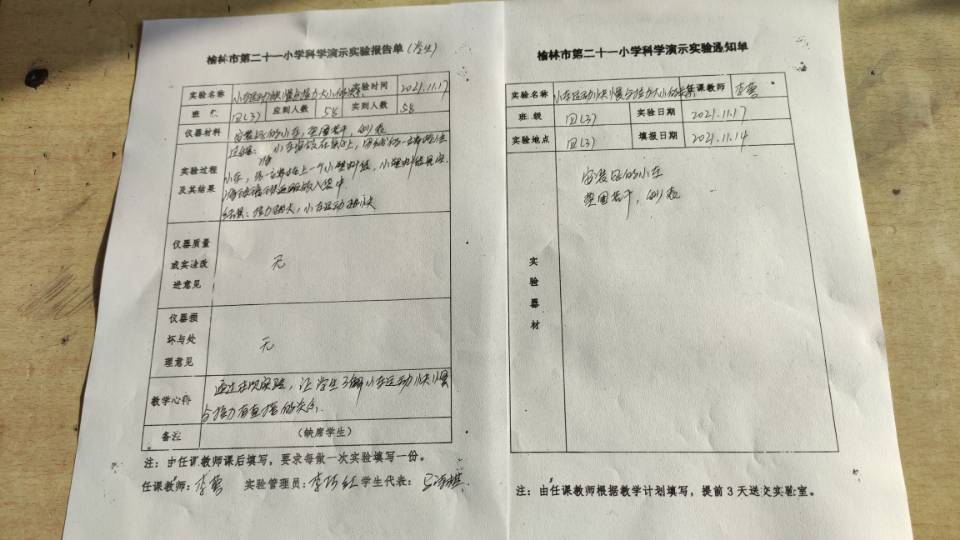 榆林市第二十一小学科学演示实验报告单(学生)
实验名称 小车运动快慢与拉力大小的关系 实验时间 2021.11.17
班级 四(3) 应到人数 58 实到人数 58
仪器材料 安装好的小车,垫圈若干,
实验过程
及其结果
小车,另一端挂上一个小塑料筐,
结果:拉力越大,小车运动越快
仪器质量
或实法改
进意见
无
仪器损
坏与处
理意见
无
教学心得
通过本次实验,让学生了解小车运动快慢
与拉力有直接的关系.
备注 (缺席学生)
注:由任课教师课后填写,要求每做一次实验填写一份。
任课教师: 实验管理员: 学生代表:
榆林市第二十一小学科学演示实验通知单
实验名称 小车运动快慢与拉力大小的关系 任课教师
班级 四(3) 实验日期 2021.11.17
实验地点 四(3) 填报日期 2021.11.14
实验器材
安装好的小车
垫圈若干,
注:由任课教师根据教学计划填写,提前3天送交实验室。